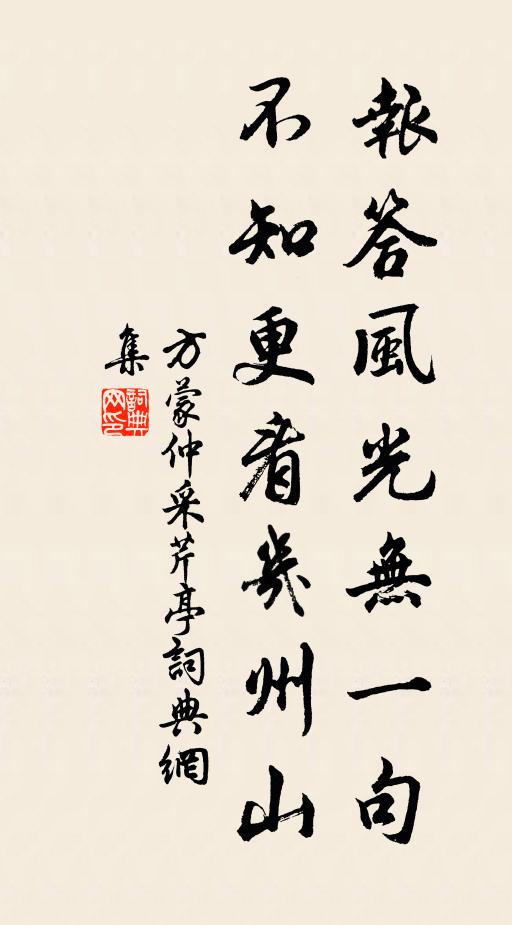 報答風光無一句
不知更看幾州山
方蒙仲采芹亭詞典網
集
詞典
网印